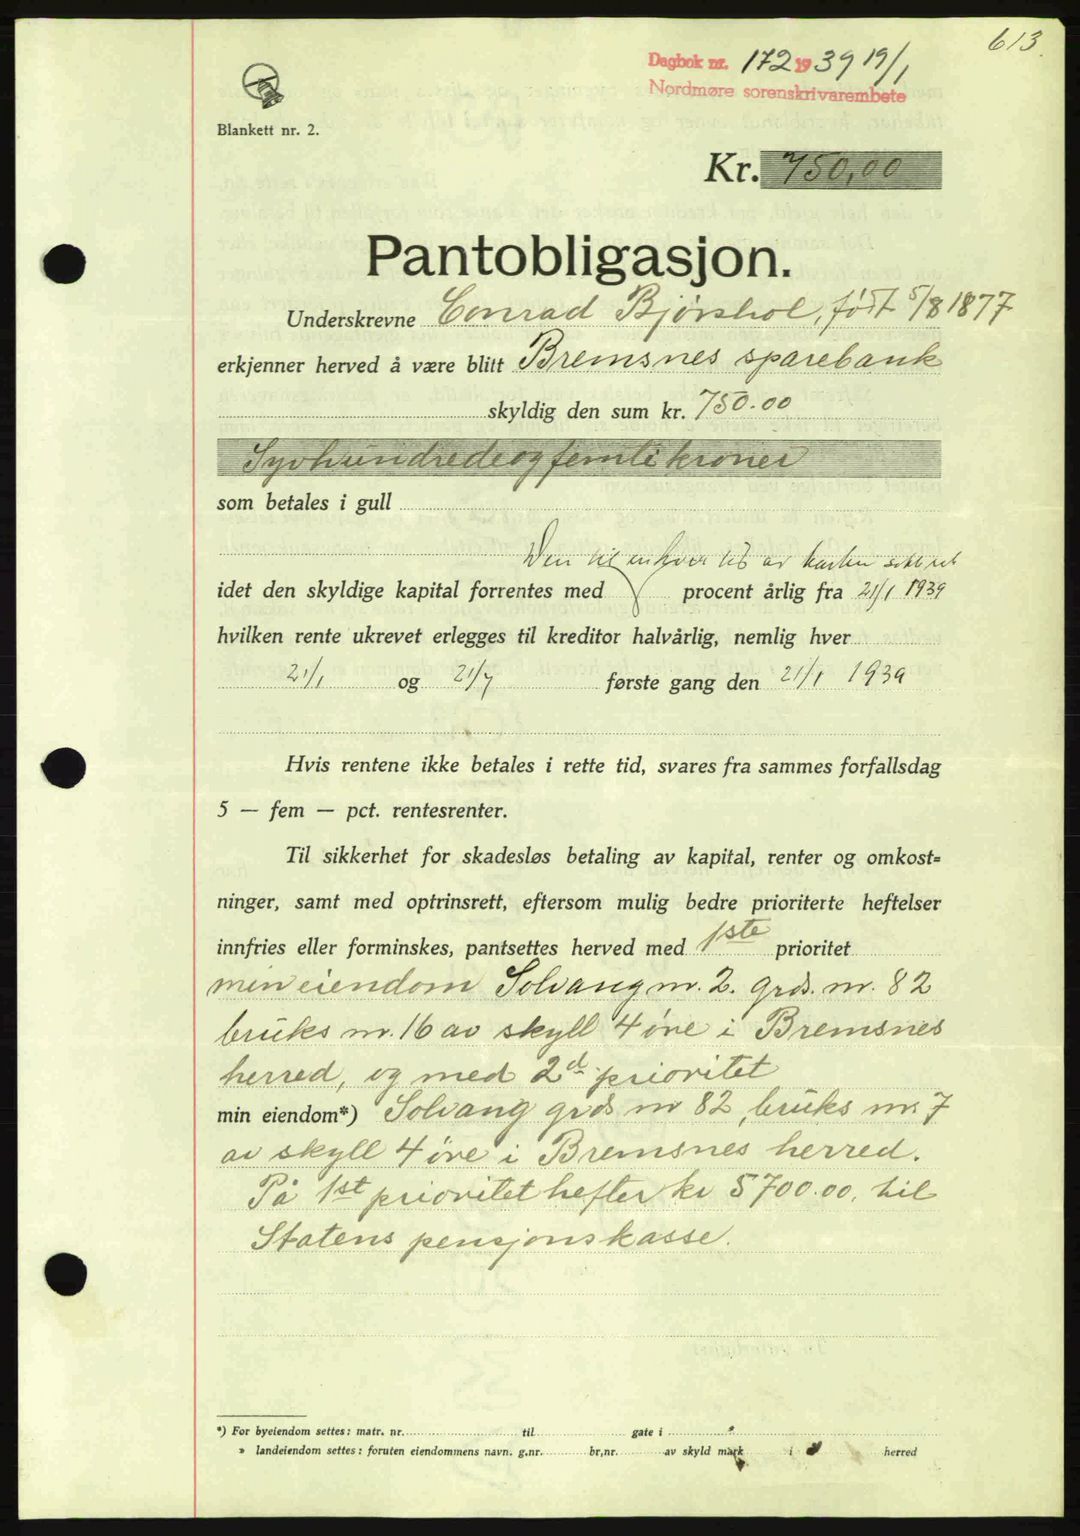 613.
Dagbok nr. 172 1939 19/1
Nordmøre sorenskrivarembete
Blankett nr. 2.
Kr. 750,00
Pantobligasjon.
Underskrevne Conrad Bjørshol, født 5/8 1877
erkjenner herved å være blitt Bremsnes sparebank
skyldig den sum kr. 750.00
Syvhundredeogfemti kroner
som betales i gull
Den til enhver tid av banken
idet den skyldige kapital forrentes med procent årlig fra 21/1 1939
hvilken rente ukrevet erlegges til kreditor halvårlig, nemlig hver
21/1 og 21/7 første gang den 21/1 1939
Hvis rentene ikke betales i rette tid, svares fra sammes forfallsdag
5 — fem — pct. rentesrenter.
Til sikkerhet for skadesløs betaling av kapital, renter og omkost=
ninger, samt med optrinsrett, eftersom mulig bedre prioriterte heftelser
innfries eller forminskes, pantsettes herved med 1ste prioritet
min eiendom Solvang nr. 2. grds. nr. 82
bruks nr. 16 av skyll 4 øre i Bremsnes
herred, og med 2d prioritet
min eiendom*) Solvang grds nr 82, bruks nr. 7
av skyll 4 øre i Bremsnes herred.
På 1st prioritet hefter kr 5700.00, til
Statens pensjonskasse.
*) For byeiendom settes: matr. nr. til gate i
» landeiendom settes: foruten eiendommens navn. g.nr. br,nr. av skyld mark i herred